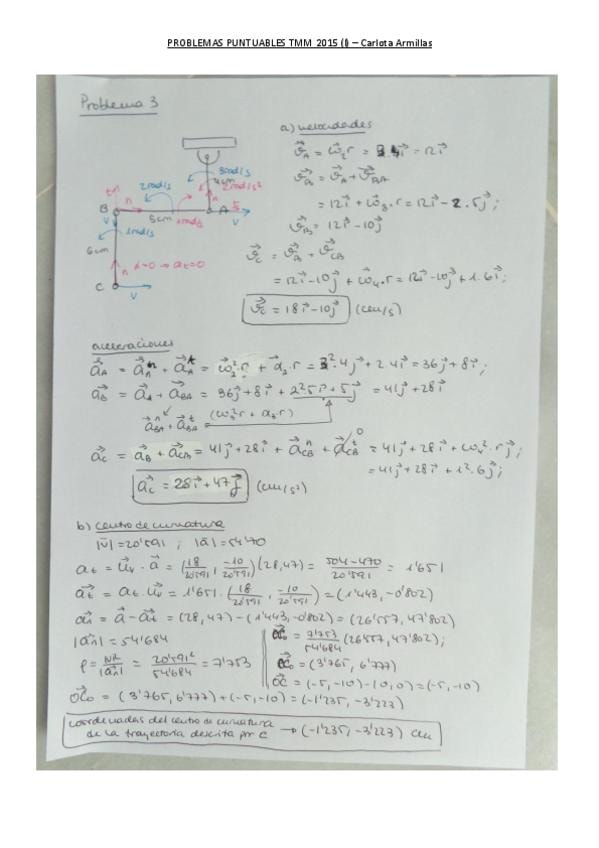 PROBLEMAS PUNTUABLES TMM 2015 (I) – Carlota Armillas
Problema 3
a) velocidades
v⃗A = ω⃗2·r = 3·4i⃗ = 12i⃗
v⃗B = v⃗A + v⃗BA
= 12i⃗ + ω⃗3·r = 12i⃗ - 2·5j⃗ ;
v⃗B = 12i⃗ - 10j⃗
v⃗C = v⃗B + v⃗CB
= 12i⃗ - 10j⃗ + ω⃗4·r = 12i⃗ - 10j⃗ + 1·6i⃗ ;
v⃗C = 18i⃗ - 10j⃗ (cm/s)
3rad/s
4cm
2rad/s²
2rad/s
B
n
A
v
5cm
1rad/s
v
1rad/s
6cm
n α=0 → at=0
C
v
aceleraciones
a⃗A = a⃗An + a⃗At = ω2²·r + α2·r = 3²·4j⃗ + 2·4i⃗ = 36j⃗ + 8i⃗ ;
a⃗B = a⃗A + a⃗BA = 36j⃗ + 8i⃗ + 2²·5i⃗ + 5j⃗ = 41j⃗ + 28i⃗
a⃗nBA + a⃗tBA = (ω3²r + α3·r)
a⃗C = a⃗B + a⃗CB = 41j⃗ + 28i⃗ + a⃗nCB + a⃗tCB 0 = 41j⃗ + 28i⃗ + ω4²·rj⃗ ;
= 41j⃗ + 28i⃗ + 1²·6j⃗ ;
a⃗C = 28i⃗ + 47j⃗ (cm/s²)
b) centro de curvatura
|v⃗| = 20'591 ; |a⃗| = 54'70
at = u⃗v · a⃗ = (18/20'591 , -10/20'591)(28,47) = 504-470/20'591 = 1'651
a⃗t = at·u⃗v = 1'651·(18/20'591 , -10/20'591) = (1'443, -0'802)
a⃗n = a⃗ - a⃗t = (28, 47) - (1'443, -0'802) = (26'557, 47'802)
|a⃗n| = 54'684
ρ = v²/|a⃗n| = 20'591²/54'684 = 7'753
CC0 = 7'753/54'684 (26'557, 47'802);
CC0 = (3'765, 6'777)
OC = (-5, -10) - (0, 0) = (-5, -10)
OC0 = (3'765, 6'777) + (-5, -10) = (-1'235, -3'223)
coordenadas del centro de curvatura
de la trayectoria descrita por C → (-1'235, -3'223) cm